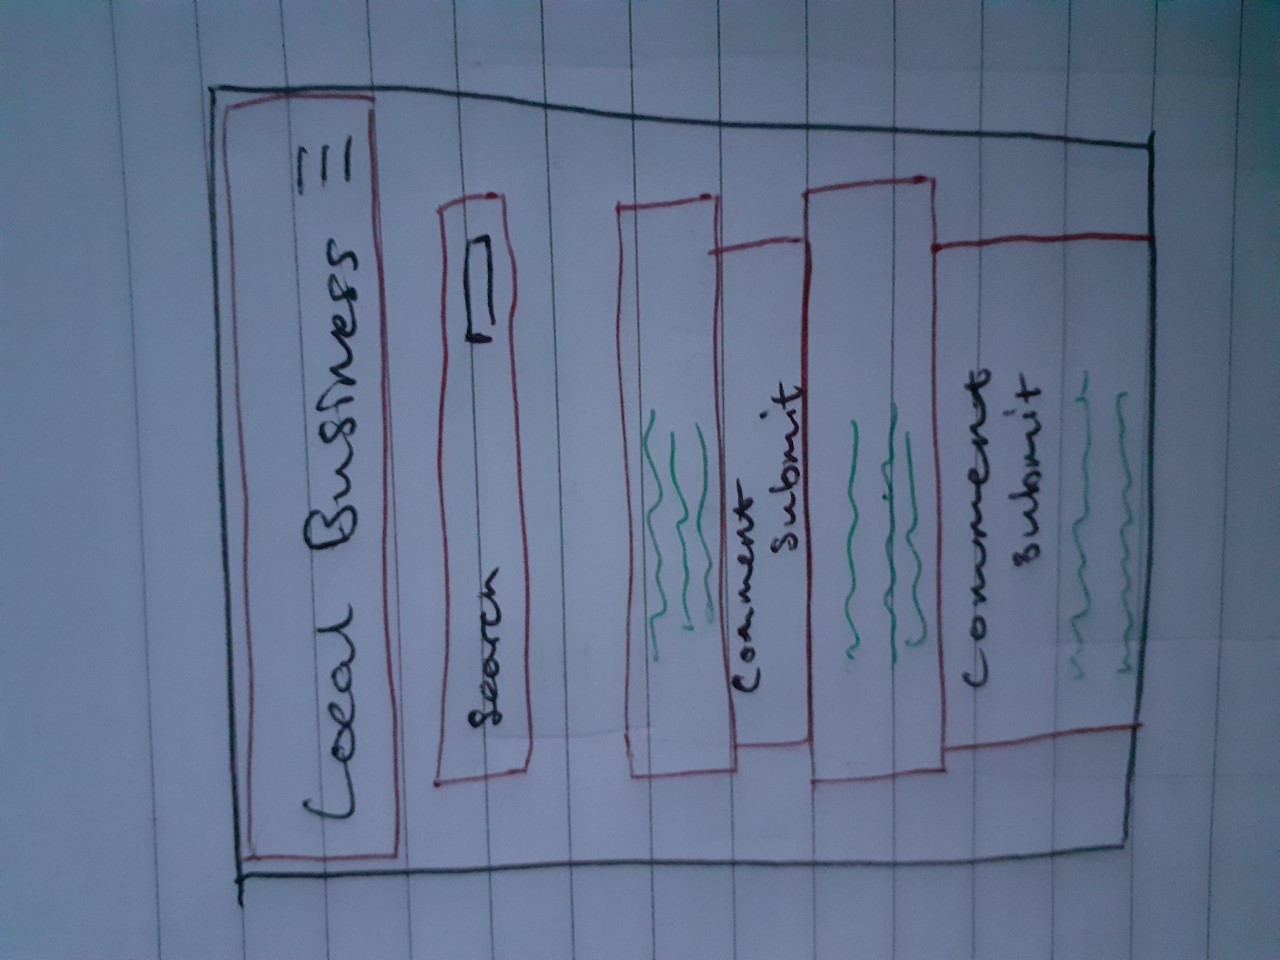 Local Business
Search
Comment
Submit
Comment
Submit